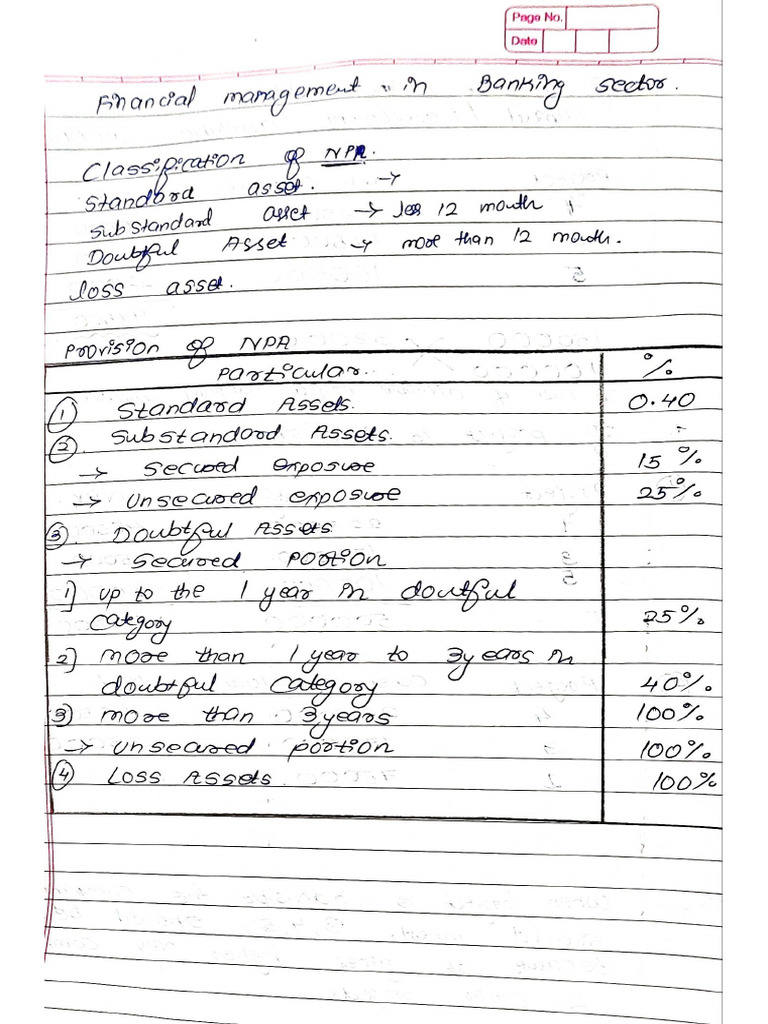 Page No.
Date
Financial management in Banking sector.
Classification of NPA.
Standard asset. →
Substandard asset → les 12 month
Doubtful Asset → more than 12 month.
loss asset.
Provision of NPA
Particular. %
① Standard Assets. 0.40
② Substandard Assets.
→ Secured exposure 15 %
→ Unsecured exposure 25%
③ Doubtful Assets.
→ Secured portion
1] up to the 1 year in doutful
category 25%
2] more than 1 year to 3years in
doubtful category 40%
3) more than 3years 100%
→ Unsecured portion 100%
④ Loss Assets. 100%